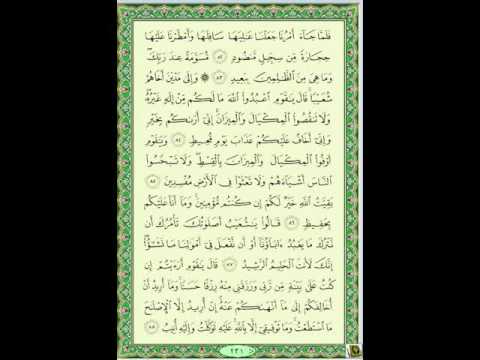 فَلَمَّا جَآءَ أَمْرُنَا جَعَلْنَا عَٰلِيَهَا سَافِلَهَا وَأَمْطَرْنَا عَلَيْهَا
حِجَارَةً مِّن سِجِّيلٍ مَّنضُودٍ ٨٢ مُّسَوَّمَةً عِندَ رَبِّكَ
وَمَا هِيَ مِنَ ٱلظَّٰلِمِينَ بِبَعِيدٍ ٨٣ ۞ وَإِلَىٰ مَدْيَنَ أَخَاهُمْ
شُعَيْبًا قَالَ يَٰقَوْمِ ٱعْبُدُوا۟ ٱللَّهَ مَا لَكُم مِّنْ إِلَٰهٍ غَيْرُهُۥ
وَلَا تَنقُصُوا۟ ٱلْمِكْيَالَ وَٱلْمِيزَانَ إِنِّيٓ أَرَىٰكُم بِخَيْرٍ
وَإِنِّيٓ أَخَافُ عَلَيْكُمْ عَذَابَ يَوْمٍ مُّحِيطٍ ٨٤ وَيَٰقَوْمِ
أَوْفُوا۟ ٱلْمِكْيَالَ وَٱلْمِيزَانَ بِٱلْقِسْطِ وَلَا تَبْخَسُوا۟
ٱلنَّاسَ أَشْيَآءَهُمْ وَلَا تَعْثَوْا۟ فِي ٱلْأَرْضِ مُفْسِدِينَ ٨٥
بَقِيَّتُ ٱللَّهِ خَيْرٌ لَّكُمْ إِن كُنتُم مُّؤْمِنِينَ وَمَآ أَنَا۠ عَلَيْكُم
بِحَفِيظٍ ٨٦ قَالُوا۟ يَٰشُعَيْبُ أَصَلَوٰتُكَ تَأْمُرُكَ أَن
نَّتْرُكَ مَا يَعْبُدُ ءَابَآؤُنَآ أَوْ أَن نَّفْعَلَ فِيٓ أَمْوَٰلِنَا مَا نَشَٰٓؤُا۟
إِنَّكَ لَأَنتَ ٱلْحَلِيمُ ٱلرَّشِيدُ ٨٧ قَالَ يَٰقَوْمِ أَرَءَيْتُمْ إِن
كُنتُ عَلَىٰ بَيِّنَةٍ مِّن رَّبِّي وَرَزَقَنِي مِنْهُ رِزْقًا حَسَنًا وَمَآ أُرِيدُ أَنْ
أُخَالِفَكُمْ إِلَىٰ مَآ أَنْهَىٰكُمْ عَنْهُ إِنْ أُرِيدُ إِلَّا ٱلْإِصْلَٰحَ
مَا ٱسْتَطَعْتُ وَمَا تَوْفِيقِيٓ إِلَّا بِٱللَّهِ عَلَيْهِ تَوَكَّلْتُ وَإِلَيْهِ أُنِيبُ ٨٨
٢٣١